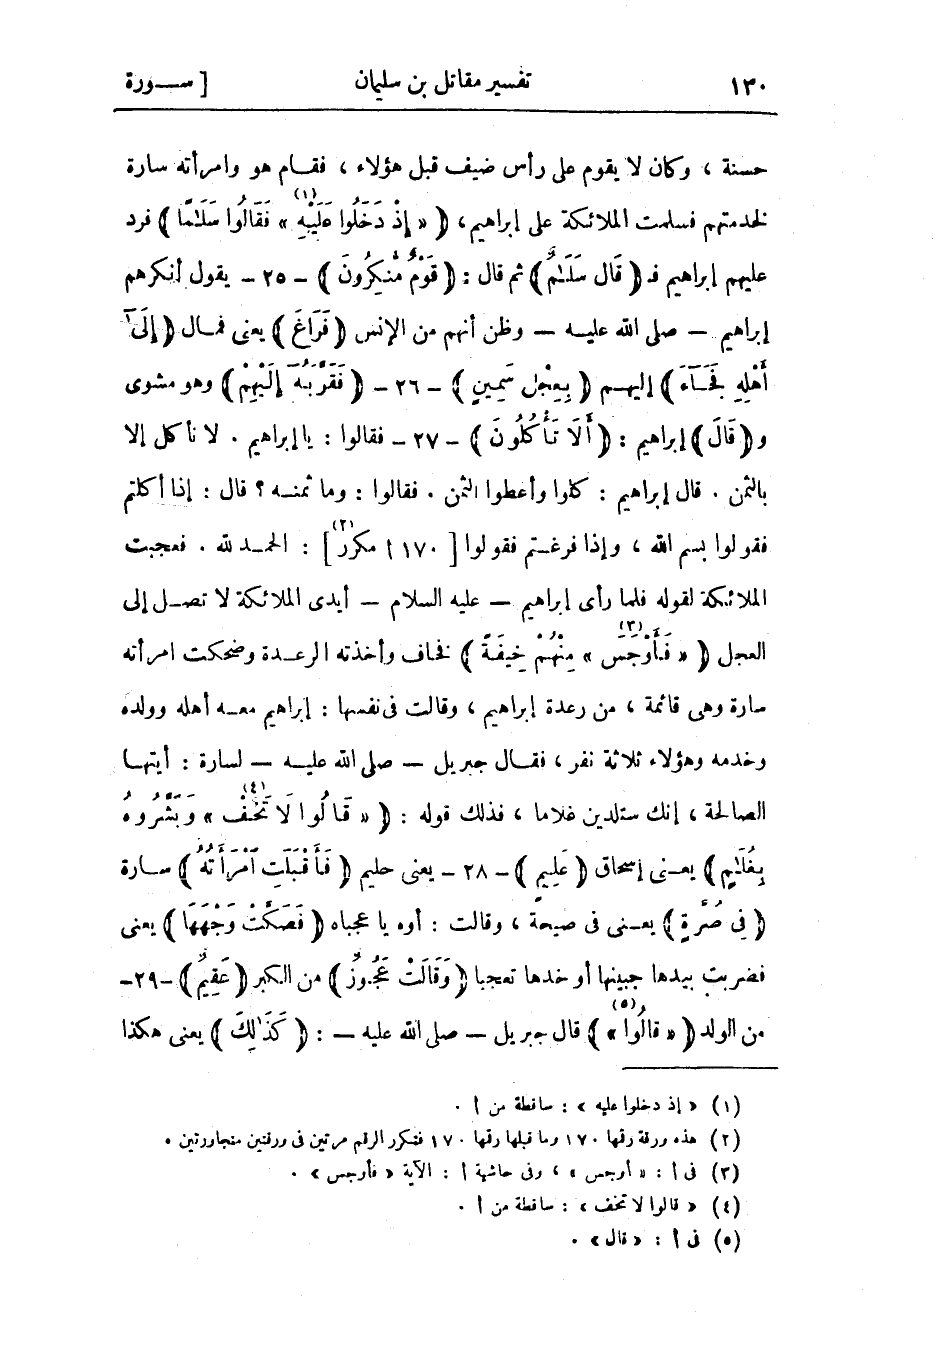 ١٣٠ تفسير مقاتل بن سليمان [ ســورة
حسنة ، وكان لا يقوم على رأس ضيف قبل هؤلاء ، فقـام هو وامرأته سارة
لخدمتهم فسلمت الملائكة على إبراهيم ، ( « إِذْ دَخَلُوا عَلَيْهِ (١) » فَقَالُوا سَلَـٰمًا ) فرد
عليهم إبراهيم فـ ( قَالَ سَلَـٰمٌ ) ثم قال : ( قَوْمٌ مُّنكَرُونَ ) – ٢٥ – يقول أنكرهم
إبراهيم – صلى الله عليـه – وظن أنهم من الإنس ( فَرَاغَ ) يعنى فمـال ( إِلَىٰٓ
أَهْلِهِ فَجَآءَ ) إليهـم ( بِعِجْلٍ سَمِينٍ ) – ٢٦ – ( فَقَرَّبَهُ إِلَيْهِمْ ) وهو مشوى
و ( قَالَ ) إبراهيم : ( أَلَا تَأْكُلُونَ ) – ٢٧ – فقالوا : يا إبراهيم . لا نأكل إلا
بالثمن . قال إبراهيم : كلوا وأعطوا الثمن . فقالوا : وما ثمنـه ؟ قال : إذا أكلتم
فقولوا بسم الله ، وإذا فرغـتم فقولوا [ ١٧٠ أ مكرر (٢) ] : الحمـد لله . فعجبت
الملائكة لقوله فلما رأى إبراهيم – عليه السلام – أيدى الملائكة لا تصـل إلى
العجل ( « فَأَوْجَسَ (٣) » مِنْهُمْ خِيفَةً ) فخاف وأخذته الرعـدة وضحكت امرأته
سارة وهى قائمة ، من رعدة إبراهيم ، وقالت فى نفسها : إبراهيم معـه أهله وولده
وخدمه وهؤلاء ثلاثة نفر ، فقـال جبريل – صلى الله عليـه – لسارة : أيتهـا
الصالحة ، إنك ستلدين غلاما ، فذلك قوله : ( « قَالُوا لَا تَخَفْ (٤) » وَبَشَّرُوهُ
بِغُلَـٰمٍ ) يعـنى إسحاق ( عَلِيمٍ ) – ٢٨ – يعنى حليم ( فَأَقْبَلَتِ ٱمْرَأَتُهُ ) سـارة
( فِى صَرَّةٍ ) يعـنى فى صيحة ، وقالت : أوه يا عجباه ( فَصَكَّتْ وَجْهَهَا ) يعنى
فضربت بيدها جبينها أو خدها تعجبا ( وَقَالَتْ عَجُوزٌ ) من الكبر ( عَقِيمٌ ) – ٢٩ –
من الولد ( « قَالُوا (٥) » ) قال جبريل – صلى الله عليه – : ( كَذَٰلِكَ ) يعنى هكذا
(١) « إذ دخلوا عليه » : ساقطة من أ .
(٢) هذه ورقة رقها ١٧٠ وما قبلها رقها ١٧٠ فتكرر الرقم مرتين فى ورقتين متجاورتين .
(٣) فى أ : « أوجس » ، وفى حاشية أ : الآية « فأوجس » .
(٤) « قالوا لا تخف » : ساقطة من أ .
(٥) فى أ : « قال » .